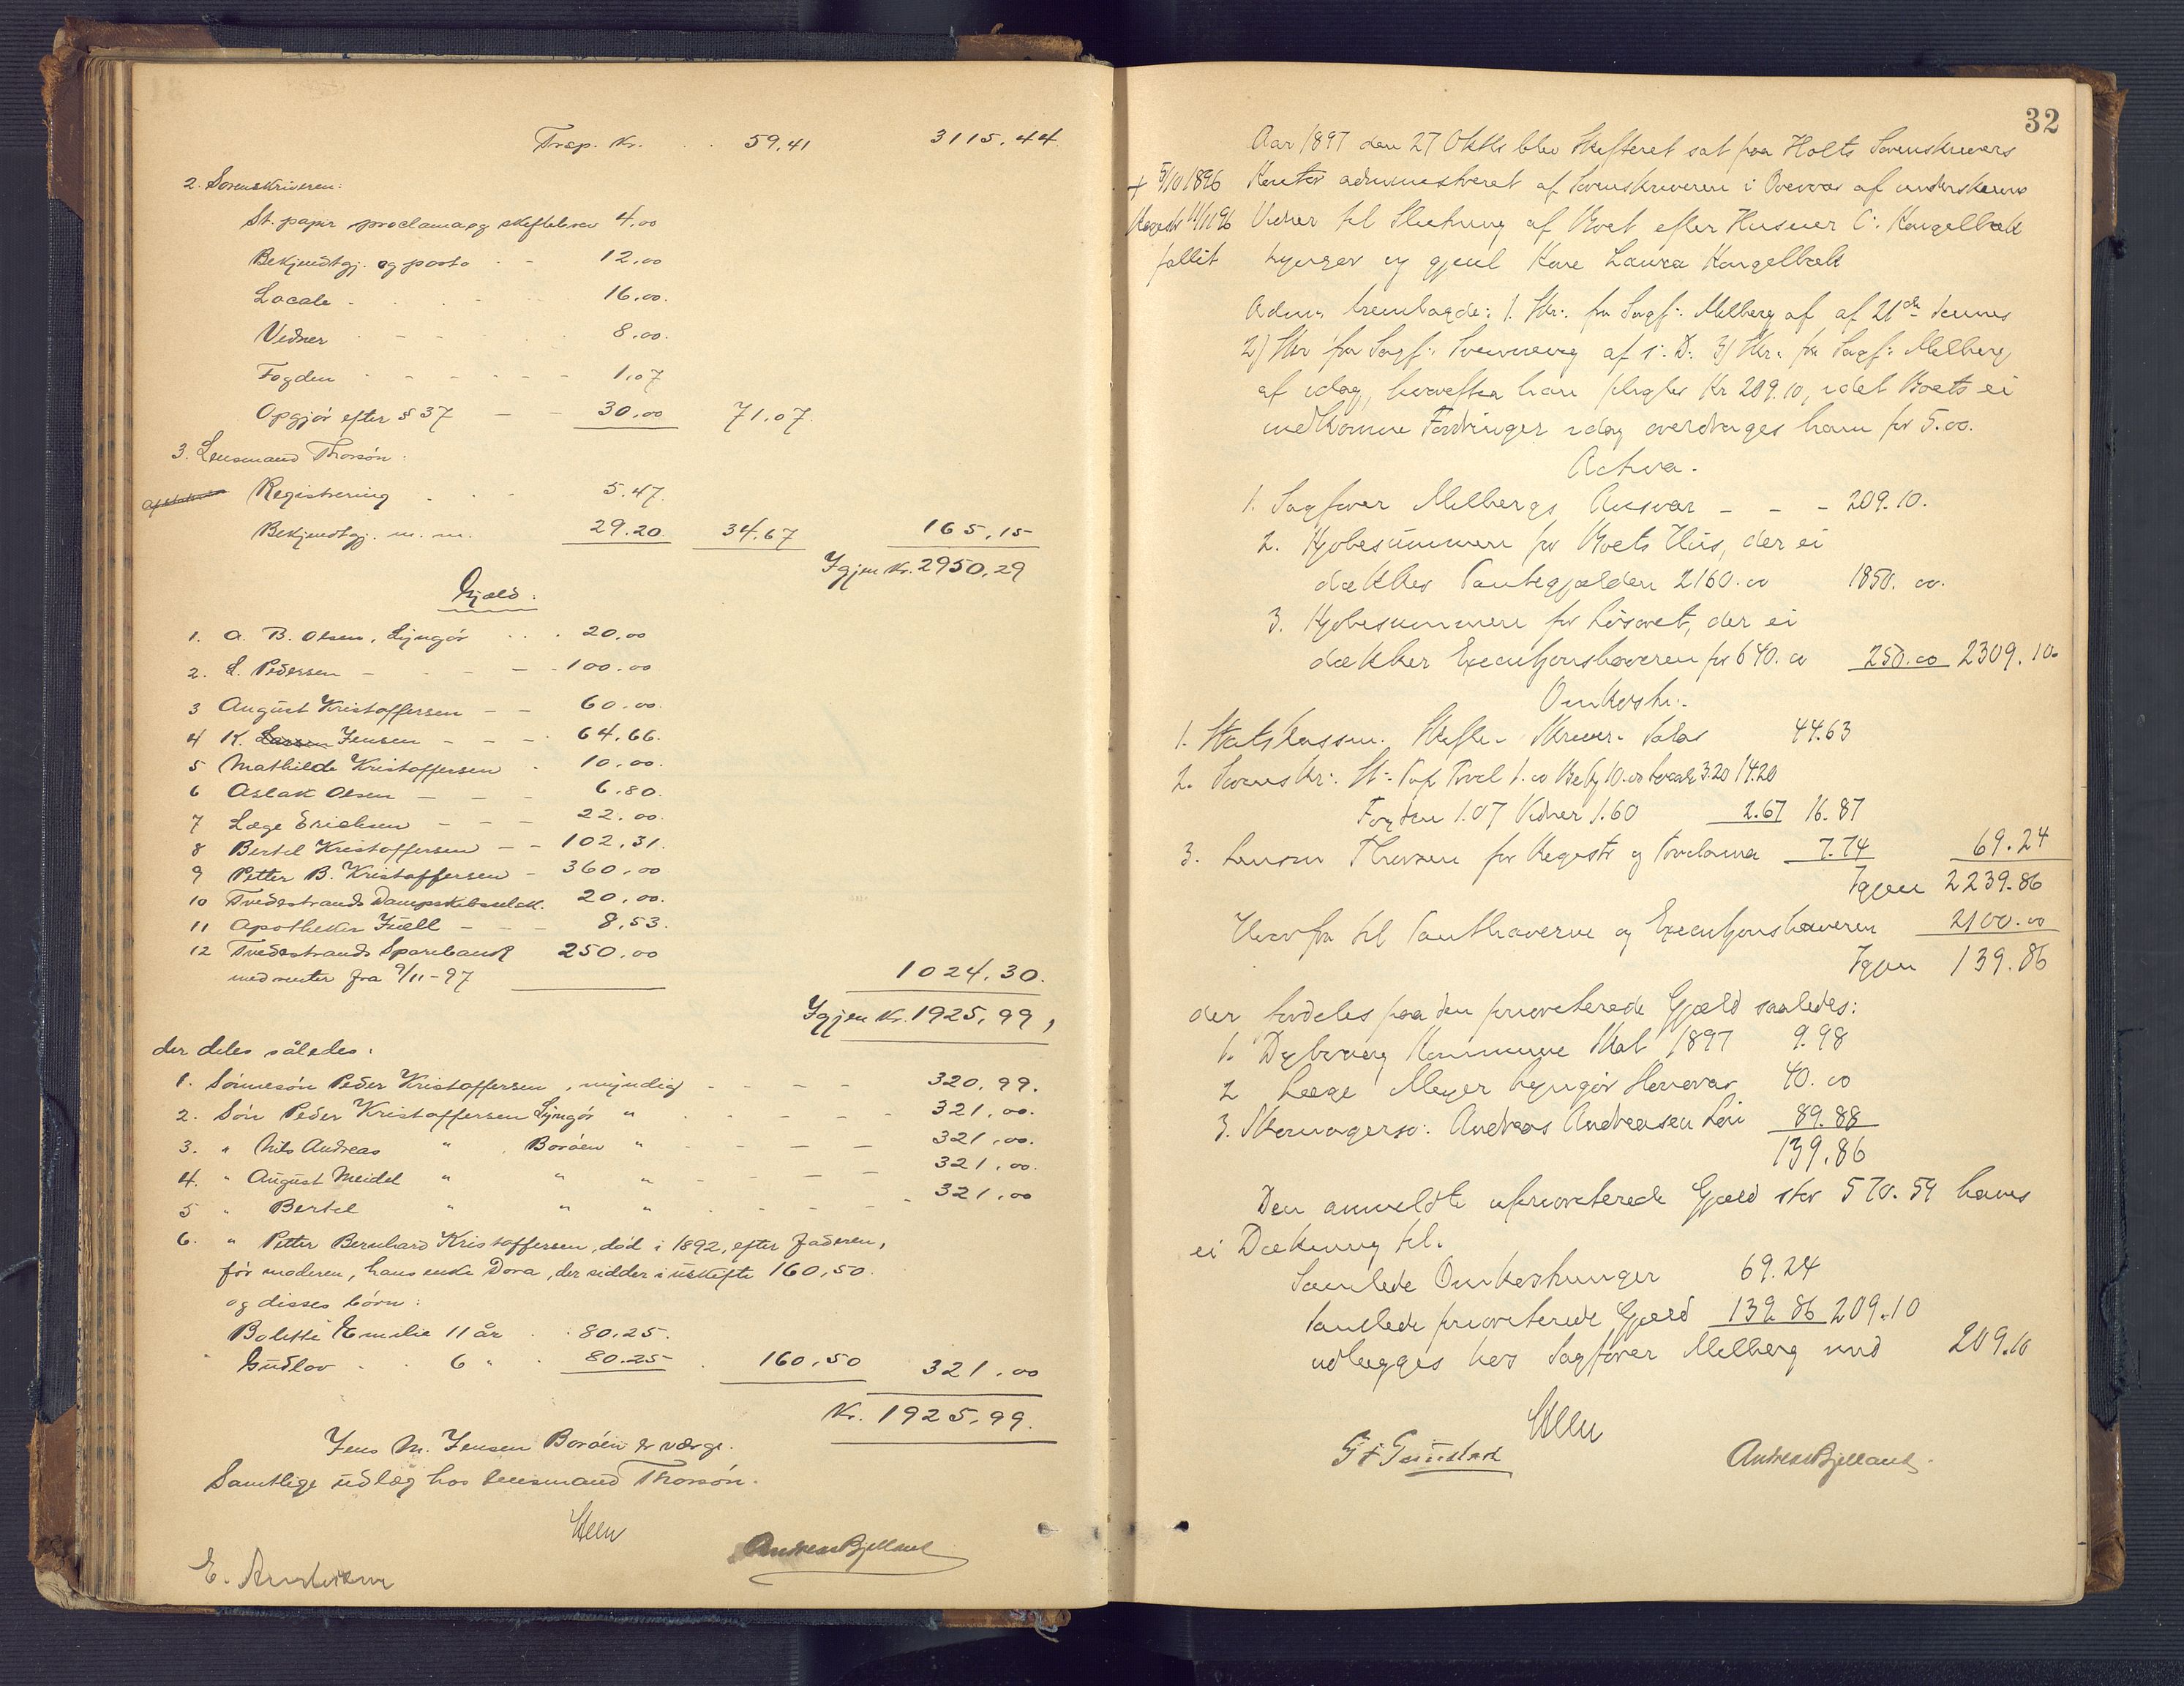 Trsp. Kr. . . 59.41 3115.44
2. Sorenskriveren:
St. papir proclama og skiftebrev 4.00
Bekjendtgj. og porto - - 12.00
Locale - . . . 16.00
Vidner - - - . 8.00.
Fogden - - - - - - 1.07
Opgjør efter § 37 - - 30.00 71.07.
3. Lensmand Thorsøn:
Registrering . . . 5.47.
Bekjendtgj. m. m. 29.20. 34.67 165.15
Igjen Kr. 2950.29
Gjæld:
1. A. B. Olsen, Lyngør . . . 20.00
2. L. Pedersen - - - - 100.00
3 August Kristoffersen - - 60.00.
4 K. Larsen Jensen - - - 64.66.
5 Mathilde Kristoffersen . 10.00.
6 Aslak Olsen - - - 6.80.
7 Læge Erichsen - - - 22.00.
8 Bertel Kristoffersen - - 102.31.
9 Petter B. Kristoffersen - 360.00
10 Tvedestrands Dampskibsselsk. 20.00.
11 Apotheker Juell - - - 8.53.
12 Tvedestrands Sparebank 250.00
med renter fra 9/11-97 1024.30.
Igjen Kr. 1925.99,
der deles således:
1. Sønnesøn Peder Kristoffersen, myndig - - - - 320.99.
2. Søn Peder Kristoffersen Lyngør " . - - - - 321.00.
3. " Nils Andreas " , Borøen " - - - - 321.00.
4. " August Meidel " " " - - - - 321.00.
5 " Bertel " " " - - - - - 321.00
6. " Petter Bernhard Kristoffersen, død i 1892, efter faderen,
før moderen, hans enke Dora, der sidder i uskifte 160.50.
og disses børn:
Bolette Emilie 11 år . . 80.25.
" Gudlov . . 6 " . 80.25 . 160.50 321.00
Kr. 1925.99.
Jens M. Jensen Borøen er værge.
Samtlige udlæg hos lensmand Thorsøn.
Andreas Bjelland
32
Aar 1897 den 27 Oktbr blev Skifteret sat paa Holts Sorenskrivers
+ 5/10 1896 Kontor administreret af Sorenskriveren i Overvær af underskrevne
Registr 11/11 96 Vidner til Slutning af Boet efter Husmer C. Kongelbæk
fallit Lyngør og gjenl Kone Laura Kongelbæk
Adm. fremlagde: 1. Skr. fra Sagf. Melberg af af 21de dennes
2) Skr fra Sagf. af s. D. 3) Skr. fra Sagf. Melberg
af idag, hvorefter han pligter Kr 209.10, idet Boets ei
indkomne Fordringer idag overdrages ham for 5.00.
Activa.
1. Sagfører Melbergs Ansvar - - - 209.10.
2. Kjøbesummen for Boets Hus, der ei
dækkes Pantegjælden 2160.00 1850.00.
3. Kjøbesummen for Løsøret, der ei
dækker Executionshaveren for 640.00 250.00 2309.10.
Omkostn.
1. Statskassen. Skifte- Skriver- Salær 44.63
2. Sorenskr. St. Pap Procl 1.00 Bekjg 10.00 Locale 3.20 14.20
Fogden 1.07 Vidner 1.60 2.67 16.87
3. Lensm Thorsøn for Registr og Proclama 7.74 69.24
Igjen 2239.86
Herfra til Panthaverne og Executionshaveren 2100.00
Igjen 139.86
der fordeles paa den prioriterede Gjæld saaledes:
1. Dybvaag Kommune Skat 1897 9.98
2 Læge Meyer Lyngør Honorar 40.00
3. Skomagersv. Andreas Andreasen Løn 89.88
139.86
Den anmeldte uprioriterede Gjæld stor 570.59 haves
ei Dækning til.
Samlede Omkostninger 69.24
Samlede prioriterede Gjæld 139.86 209.10
udlægges hos Sagfører Melberg med 209.10
Andreas Bjelland